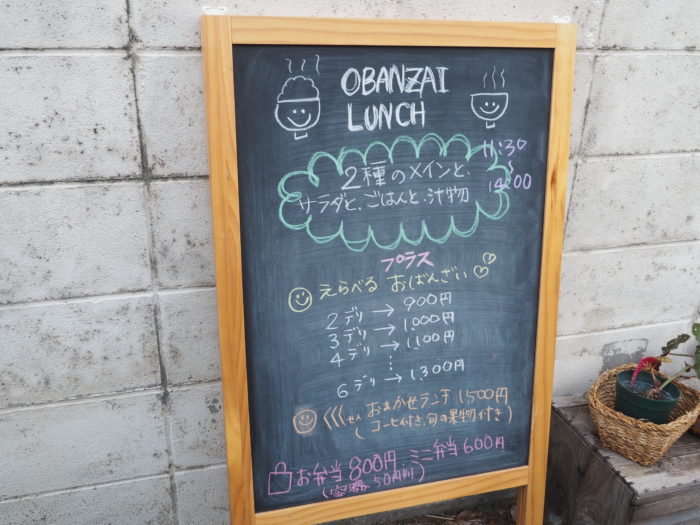 OBANZAI
LUNCH
11:30
~
14:00
2種のメインと、
サラダと、ごはんと、汁物
プラス
えらべる おばんざい
2デリ → 900円
3デリ → 1,000円
4デリ → 1,100円
⋮
6デリ → 1,300円
おまかせランチ 1500円
(コーヒー付き、旬の果物付き)
お弁当 800円、ミニ弁当 600円
(容器 50円別)